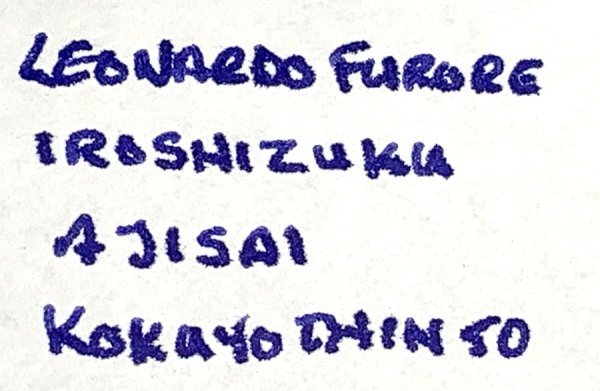 LEONARDO FURORE
IROSHIZUKU
AJISAI
KOKUYO THIN 50